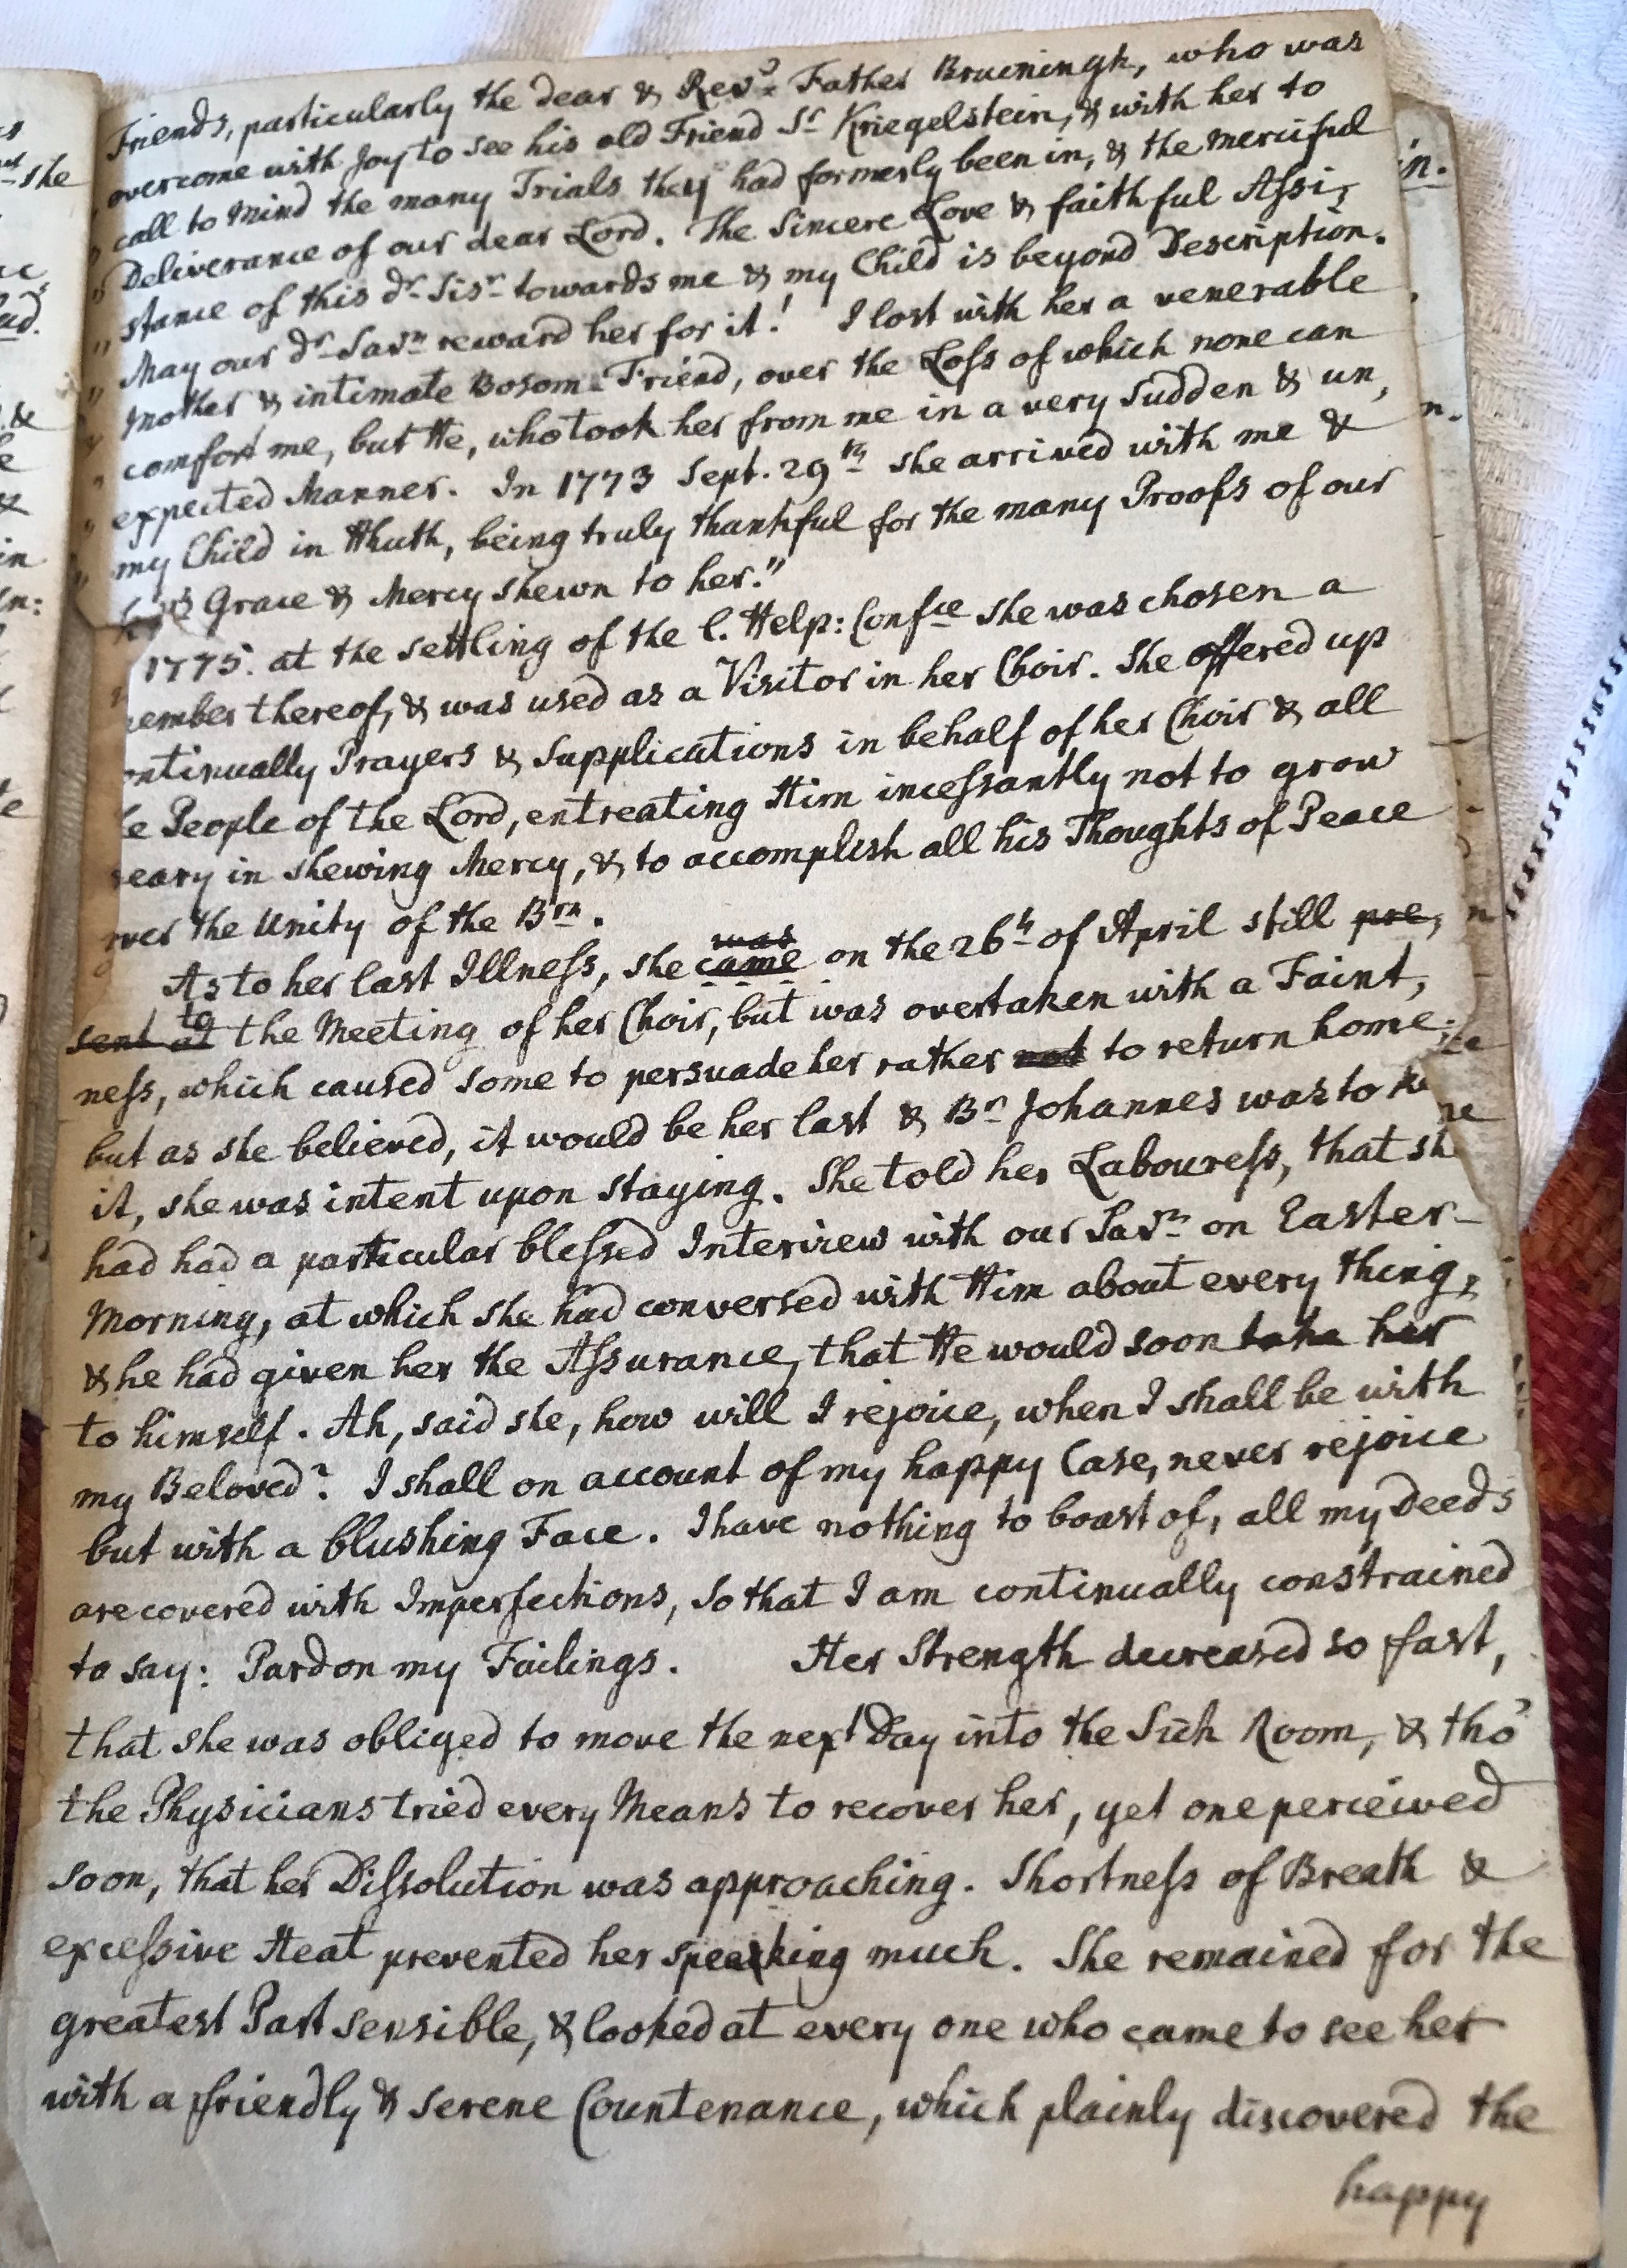 Friends, particularly the dear & Revd. Father Bruiningk, who was
overcome with Joy to see his old Friend Sr Kriegelstein, & with her to
" call to Mind the many Trials they had formerly been in, & the merciful
" Deliverance of our dear Lord. The Sincere Love & faithful Assi,
" stance of this dr Sisr towards me & my Child is beyond Description.
" May our dr Savr reward her for it! I lost with her a venerable
" Mother & intimate Bosom-Friend, over the Loss of which none can
" comfort me, but He, who took her from me in a very Sudden & un,
" expected Manner. In 1773 Sept. 29th she arrived with me &
" my Child in Hhuth, being truly thankful for the many Proofs of our
Grace & Mercy shewn to her."
1775. at the settling of the C. Help: Confce she was chosen a
ember thereof, & was used as a Visitor in her Choir. She offered up
ontinually Prayers & Supplications in behalf of her Choir & all
e People of the Lord, entreating Him incessantly not to grow
eary in shewing Mercy, & to accomplish all his Thoughts of Peace
ver the Unity of the Brn.
As to her last Illness, she was came on the 26th of April still pre,
sent at to the Meeting of her Choir, but was overtaken with a Faint,
ness, which caused some to persuade her rather not to return home;
but as she believed, it would be her last & Br Johannes was to
it, she was intent upon staying. She told her Labouress, that sh
had had a particular blessed Interview with our Savr on Easter-
Morning, at which she had conversed with Him about every thing,
& he had given her the Assurance, that He would soon take her
to himself. Ah, said she, how will I rejoice, when I shall be with
my Beloved? I shall on account of my happy Case, never rejoice
but with a blushing Face. I have nothing to boast of, all my Deeds
are covered with Imperfections, so that I am continually constrained
to say: Pardon my Failings. Her Strength decreased so fast,
that she was obliged to move the next Day into the Sick Room, & tho'
the Physicians tried every Means to recover her, yet one perceived
soon, that her Dissolution was approaching. Shortness of Breath &
excessive Heat prevented her speaking much. She remained for the
greatest Part sensible, & looked at every one who came to see her
with a friendly & serene Countenance, which plainly discovered the
happy